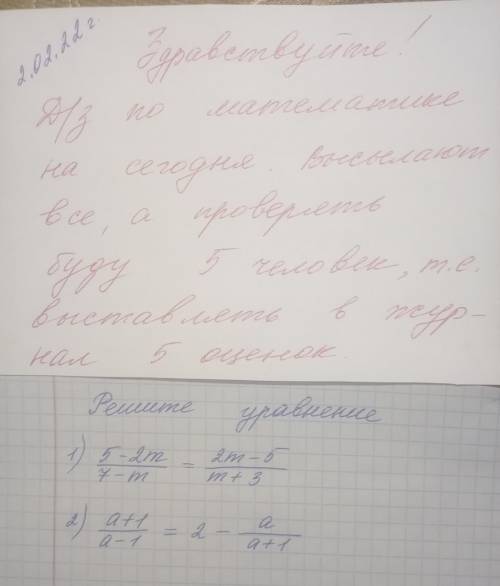 2.02.22 г.
Здравствуйте!
Д/з по математике
на сегодня. Высылают
все, а проверять
буду 5 человек, т.е.
выставлять в жур-
нал 5 оценок.
Решите уравнение
1) (5-2m)/(7-m) = (2m-5)/(m+3)
2) (a+1)/(a-1) = 2 - a/(a+1)